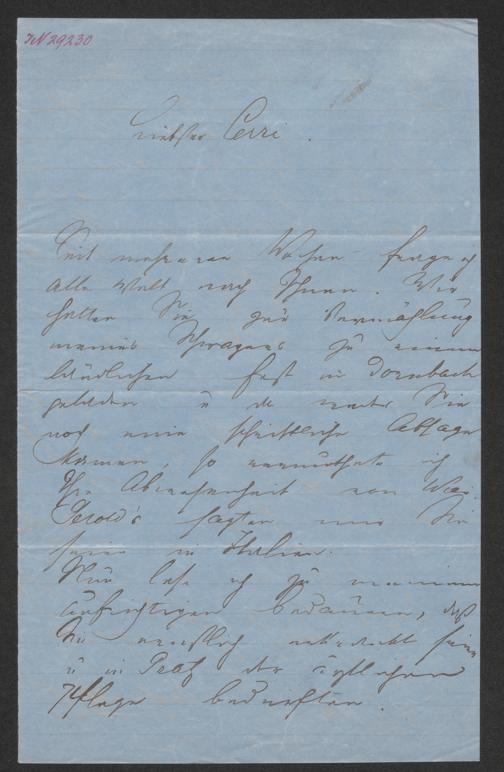 IN 29230
Liebster Cerri.
Seit mehreren Wochen frage ich
alle Welt nach Ihnen. Wir
hatten Sie zur Vermählung
meines Schwagers zu einem
ländlichen Fest in Dornbach
geladen u da weder Sie
noch eine schriftliche Absage
kamen, so vermuthete ich
Ihre Abwesenheit von Wien.
Gerold's sagten mir Sie
seien in Italien.
Nun lese ich zu meinem
aufrichtigen Bedauern, daß
Sie ernstlich erkrankt seien
u in Graz der
Pflege bedurften.